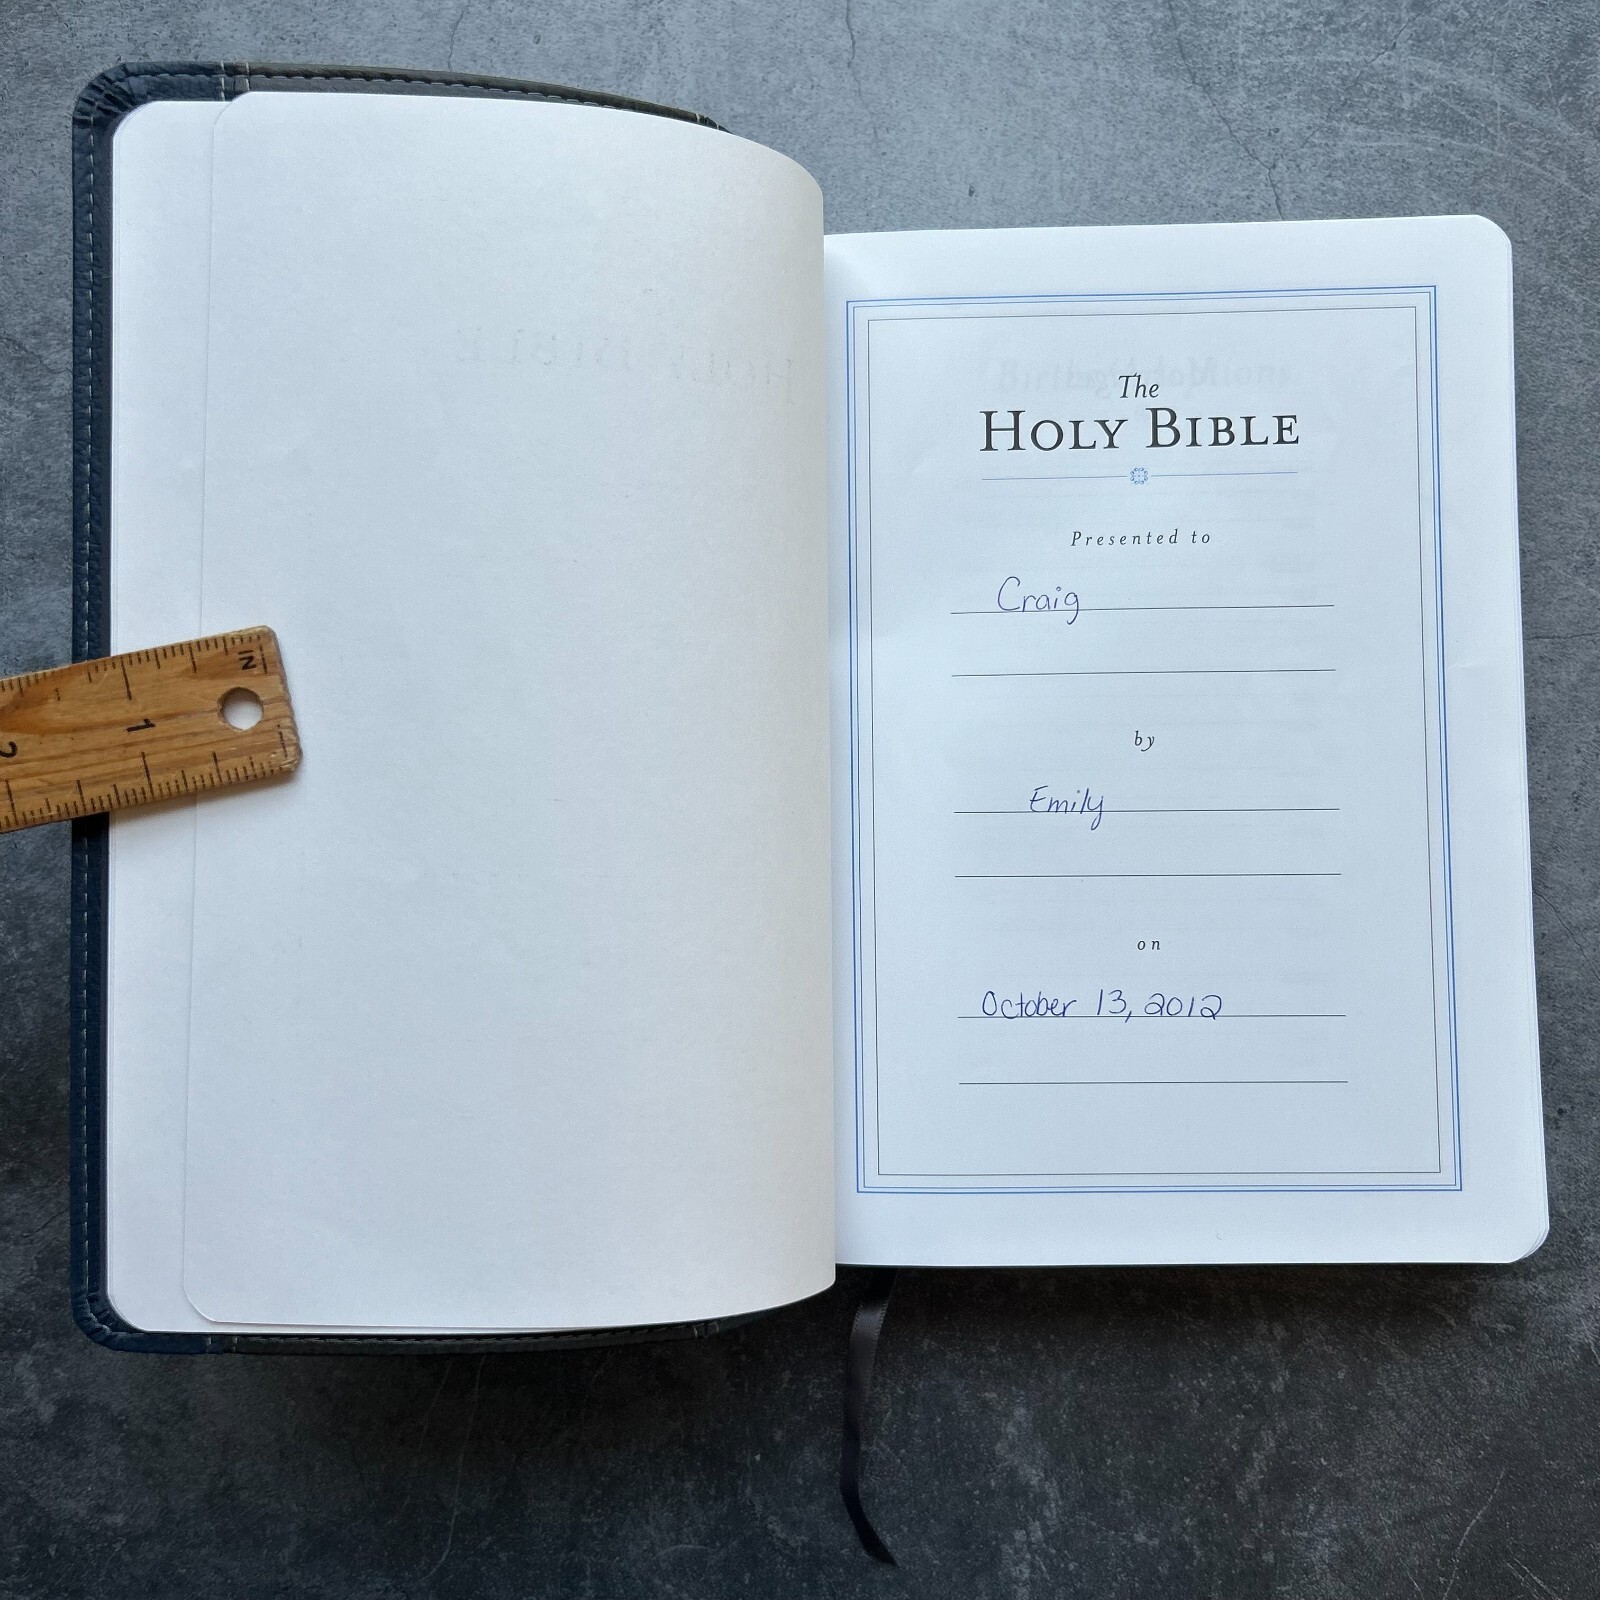 IN
1
2
The
HOLY BIBLE
Presented to
Craig
by
Emily
on
October 13, 2012